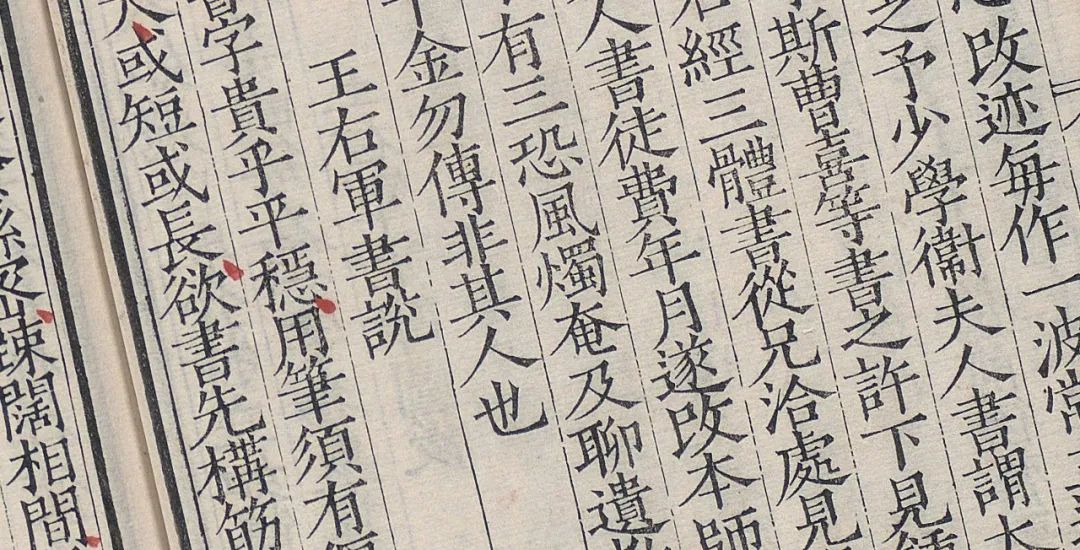 改迹毎作一波常
之予少學衞夫人書謂大
斯曹喜等書之許下見鍾
經三體書從兄洽處見
人書徒費年月遂改本師
有三恐風燭奄及聊遺
千金勿傳非其人也
王右軍書說
字貴乎平穩用筆須有偃
或短或長欲書先構筋
踈闊相間